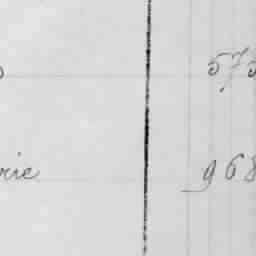 575
rie 968